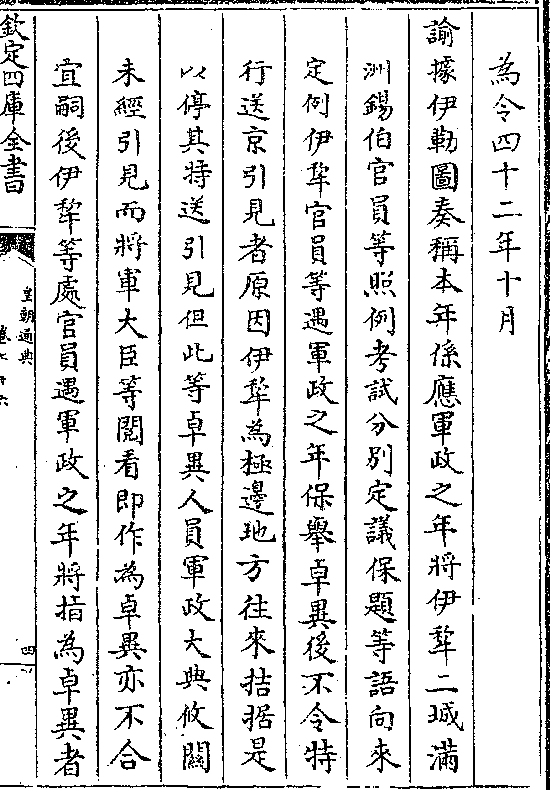 為令四十二年十月
諭據伊勒圖奏稱本年係應軍政之年將伊犂二城滿
洲錫伯官員等照例考試分別定議保題等語向來
定例伊犂官員等遇軍政之年保舉卓異後不令特
行送京引見者原因伊犂為極邊地方往來拮据是
以停其特送引見但此等卓異人員軍政大典攸關
未經引見而將軍大臣等閱看即作為卓異亦不合
宜嗣後伊犂等處官員遇軍政之年將指為卓異者
欽定四庫全書
皇朝通典